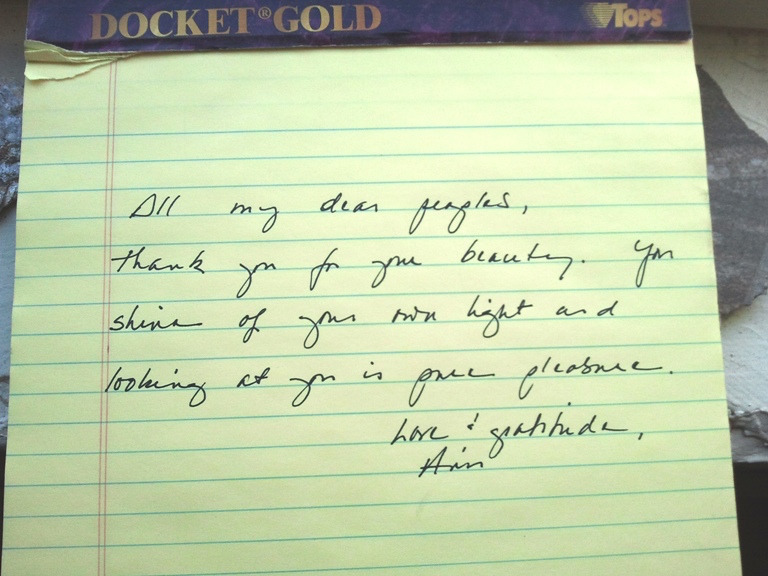 DOCKET® GOLD
TOPS
All my dear peoples,
thank you for your beauty. You
shine of your own light and
looking at you is pure pleasure.
Love & gratitude,
Ann